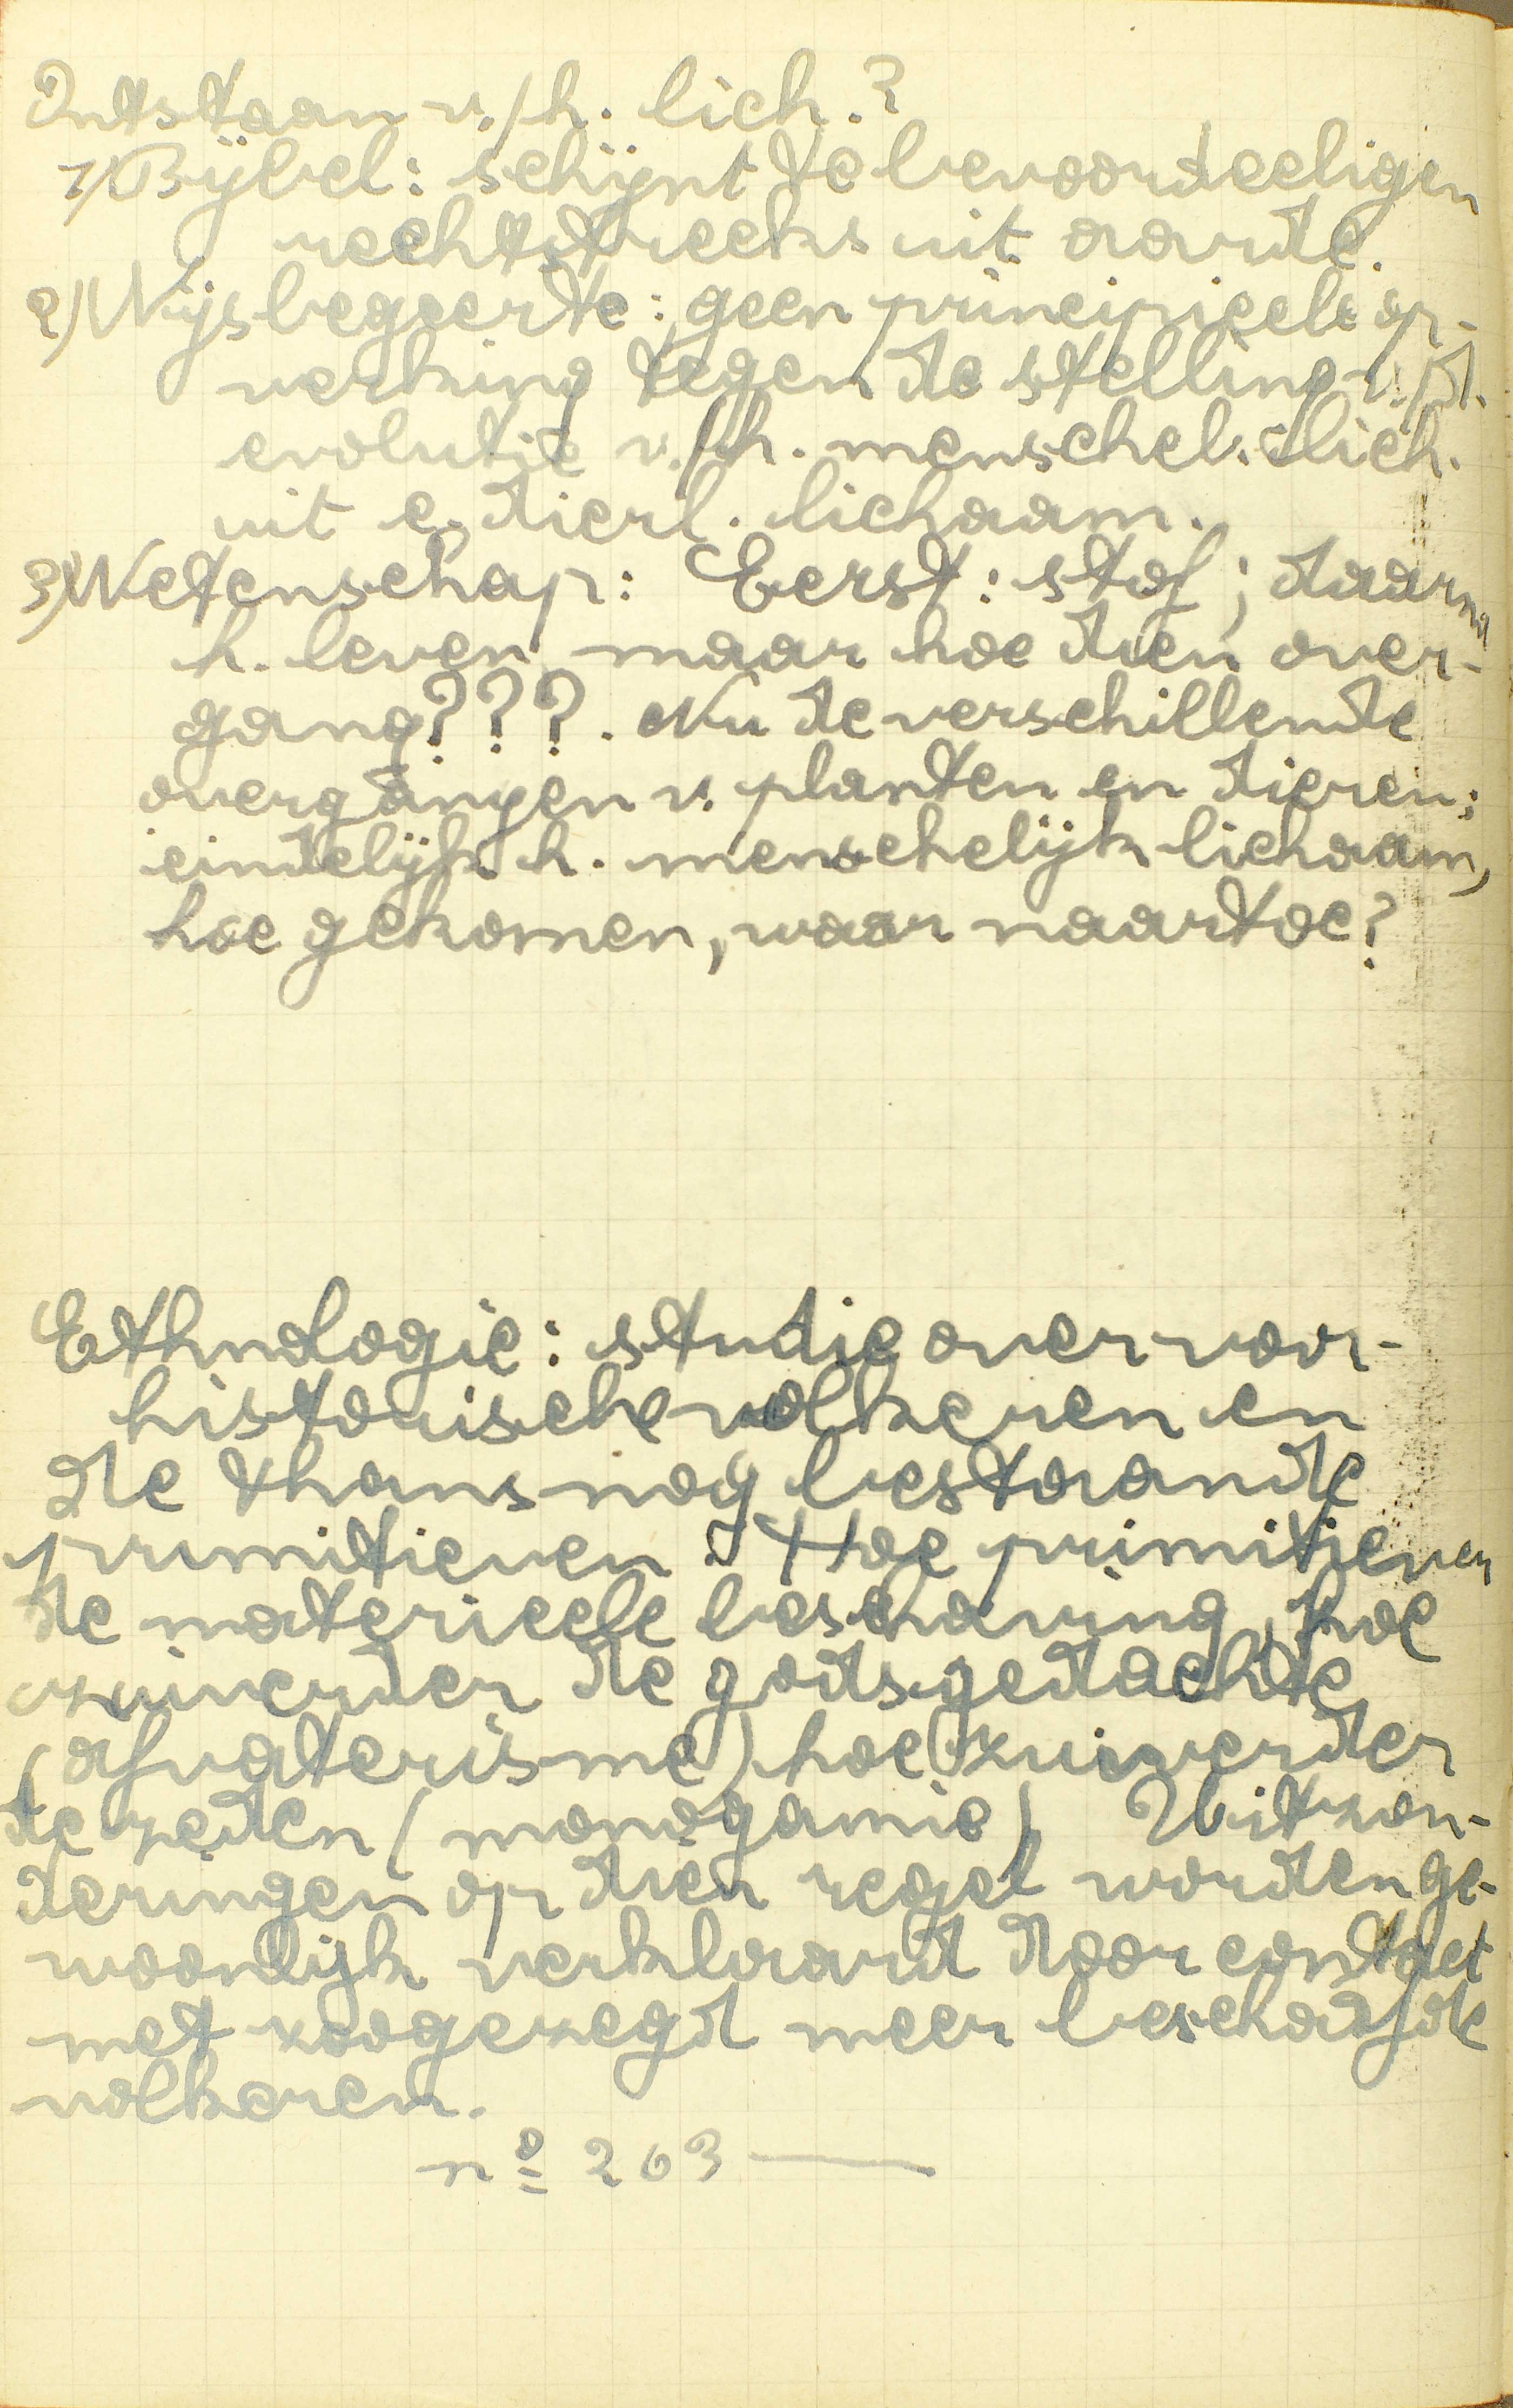 Ontstaan v./h. lich.?
1/ Bijbel: schijnt te bevoordeeligen
rechtstreeks uit aarde.
2) Wijsbegeerte: geen principieele op-
werking tegen de stelling v./d.
evolutie v./h. menschel. lich.
uit e. dierl. lichaam.
3) Wetenschap: Eerst: stof; daarna
h. leven, maar hoe dien over-
gang???. Nu de verschillende
overgangen v. planten en dieren;
eindelijk h. menschelijk lichaam,
hoe gekomen, waar naartoe?
Ethnologie: studie over voor-
historische volkeren en
de thans nog bestaande
primitieven. Hoe primitiever
de materieele beschaving, hoe
zuiverder de godsgedachte
(afvaterisme) hoe zuiverder
de zeden (monogamie) Uitzon-
deringen op dien regel worden ge-
woonlijk verklaard door contact
met zoogezegd meer beschaafde
volkeren.
nº 263 —